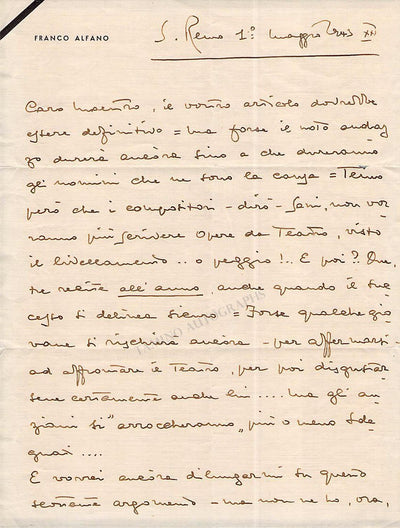 FRANCO ALFANO
S. Remo 1º Maggio 1943 XXI
Caro Maestro, il vostro articolo dovrebbe
essere definitivo = ma forse il noto andaz
zo durerà ancora sino a che dureranno
gli uomini che ne sono la causa = Temo
però che i compositori - dirò - sani, non vor
ranno più scrivere Opere da Teatro, visto
il livellamento .. o peggio!.. E poi? Due,
tre recite all'anno, anche quando il suc
cesso si delinea sicuro = Forse qualche gio
vane si rischierà ancora - per affermarsi -
ad affrontare il Teatro, per poi disgustar
sene certamente anche lui .... ma gli an
ziani si "arroccheranno" più o meno sde
gnati ....
E vorrei ancora dilungarmi su questo
argomento - ma non ne ho, ora,
TAMINO AUTOGRAPHS